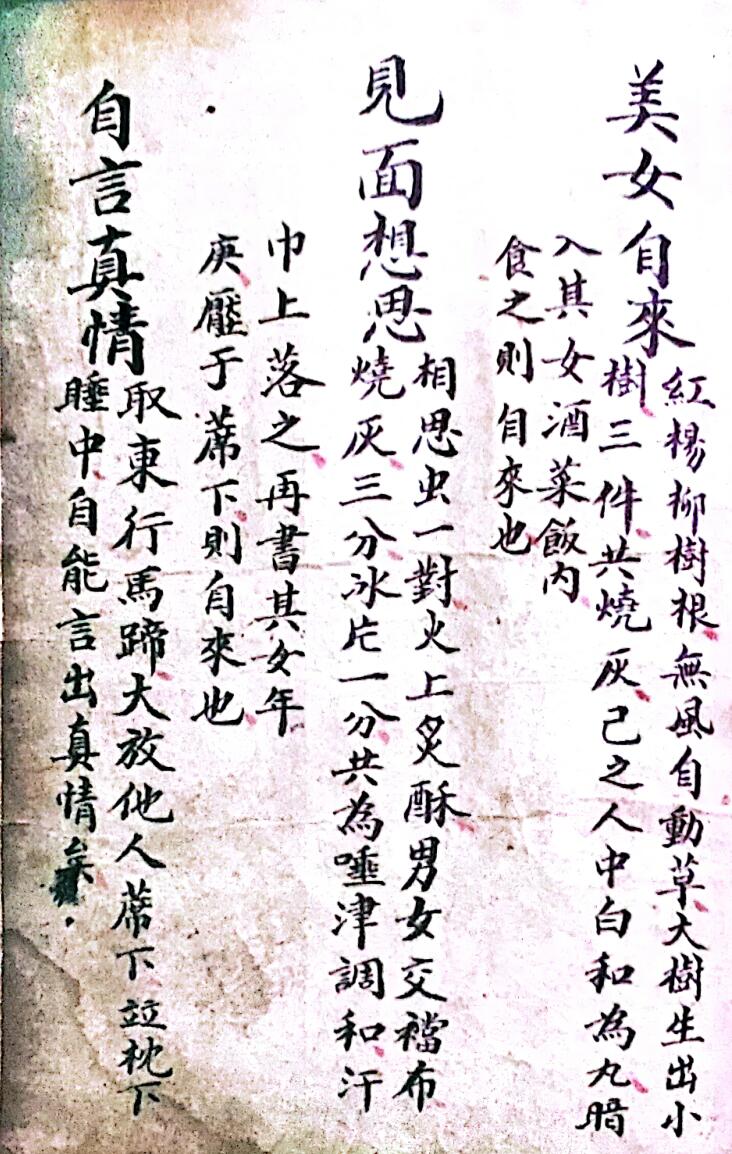 美女自來
紅楊柳樹根無風自動草大樹生出小
樹三件共燒灰己之人中白和為丸暗
入其女酒菜飯內
食之則自來也
見面想思
相思虫一對火上炙酥男女交襠布
燒灰三分冰片一分共為唾津調和汗
巾上落之再書其女年
庚壓于蓆下則自來也
自言真情
取東行馬蹄大放他人蓆下竝枕下
睡中自能言出真情矣